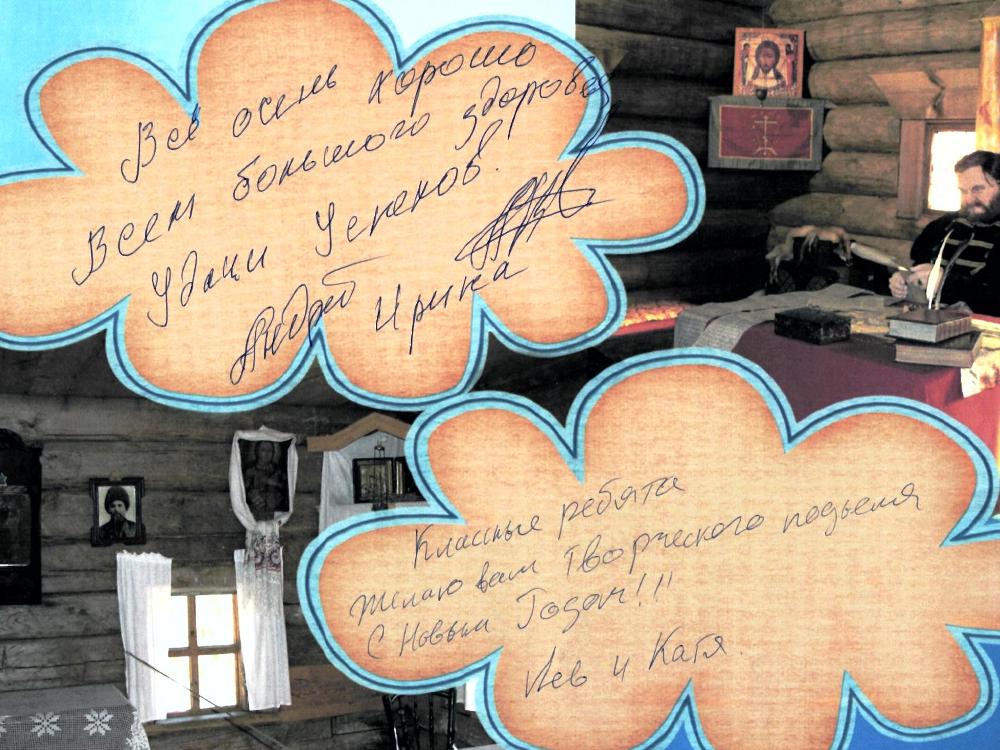 Всё очень хорошо
Всем большого здоровья
Удачи Успехов!
Андрей
Ирина
Классные ребята
желаю вам творческого подъема
С Новым Годом!!!
Лев и Катя.